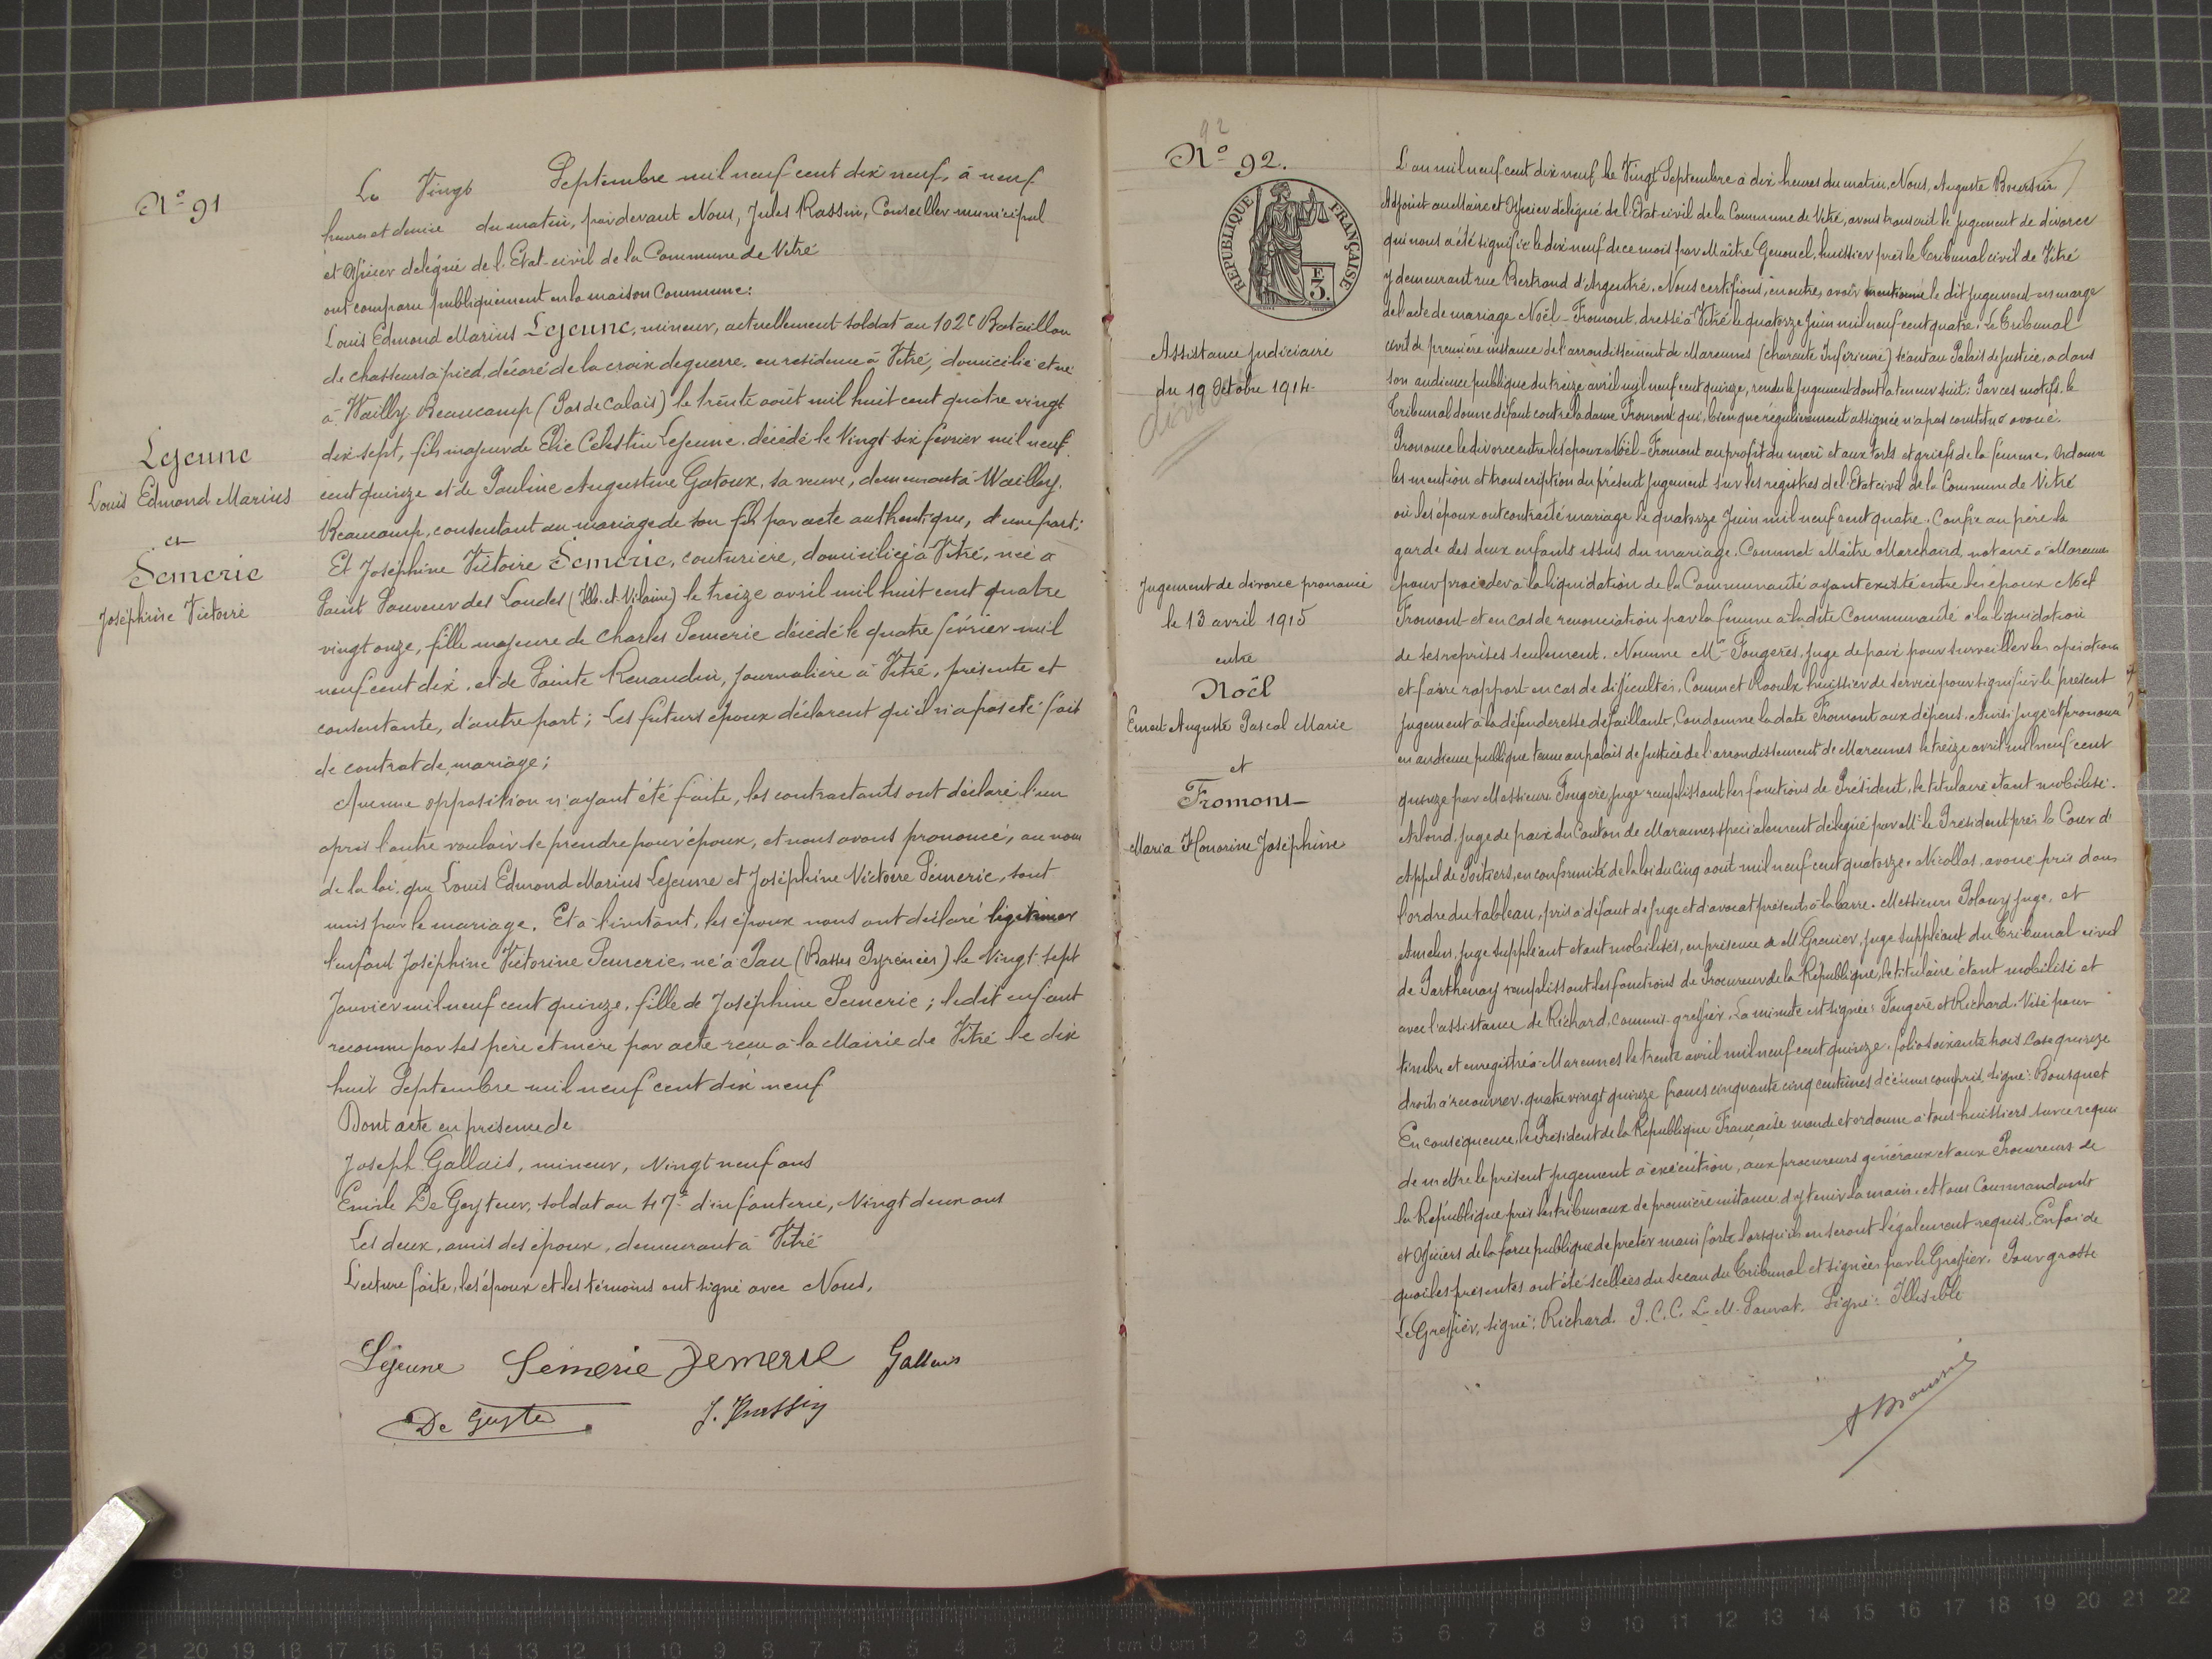 N° 91
Lejeune
Louis Edmond Marius
et
Semerie
Joséphine Victoire
Le Vingt Septembre mil neuf cent dix neuf, à neuf
heures et demie du matin, par devant Nous, Jules Rassin, Conseiller municipal
et Officier délégué de l'Etat-civil de la Commune de Vitré
ont comparu publiquement en la maison Commune:
Louis Edmond Marius Lejeune, mineur, actuellement soldat au 102e Bataillon
de chasseurs à pied, décoré de la croix de guerre, en résidence à Vitré, domicilié et né
à Wailly Beaucamp (Pas de Calais) le trente août mil huit cent quatre vingt
dix sept, fils majeur de Elie Célestin Lejeune, décédé le Vingt six février mil neuf
cent quinze et de Pauline Augustine Gatoux, sa veuve, demeurant à Wailly
Beaucamp, consentant au mariage de son fils par acte authentique, d'une part;
Et Joséphine Victoire Semerie, couturière, domiciliée à Vitré, née à
Saint Sauveur des Landes (Ille-et-Vilaine) le treize avril mil huit cent quatre
vingt onze, fille majeure de Charles Semerie décédé le quatre février mil
neuf cent dix, et de Sainte Renaudin, journalière à Vitré, présente et
consentante, d'autre part; Les futurs époux déclarent qu'il n'a pas été fait
de contrat de mariage;
Aucune opposition n'ayant été faite, les contractants ont déclaré l'un
après l'autre vouloir se prendre pour époux, et nous avons prononcé, au nom
de la loi, que Louis Edmond Marius Lejeune et Joséphine Victoire Semerie, sont
unis par le mariage. Et à l'instant, les époux nous ont déclaré légitimer
l'enfant Joséphine Victorine Semerie, né à Pau (Basses Pyrénées) le Vingt sept
Janvier mil neuf cent quinze, fille de Joséphine Semerie; ledit enfant
reconnu par ses père et mère par acte reçu à la Mairie de Vitré le dix
huit Septembre mil neuf cent dix neuf
Dont acte en présence de
Joseph Gallais, mineur, Vingt neuf ans
Emile De Geyteur, soldat au 47e d'infanterie, Vingt deux ans
Les deux, amis des époux, demeurant à Vitré
Lecture faite, les époux et les témoins ont signé avec Nous,
Lejeune Semerie Semerie Gallais
De Geyter J. Rassin
92
N° 92.
REPUBLIQUE FRANÇAISE
F
3.
Assistance Judiciaire
du 19 Octobre 1914
divorce
Jugement de divorce prononcé
le 13 avril 1915
entre
Noël
Ernest Auguste Pascal Marie
et
Fromont
Maria Honorine Joséphine
L'an mil neuf cent dix neuf le Vingt Septembre à dix heures du matin, Nous, Auguste Boursin
Adjoint au Maire et Officier délégué de l'Etat-civil de la Commune de Vitré, avons transcrit le jugement de divorce
qui nous a été signifié le dix neuf de ce mois par Maître Genouel, huissier près le Tribunal civil de Vitré
y demeurant rue Bertrand d'Argentré. Nous certifions, en outre, avoir mentionné le dit jugement en marge
de l'acte de mariage Noël-Fromont, dressé à Vitré le quatorze Juin mil neuf cent quatre. Le Tribunal
civil de première instance de l'arrondissement de Marennes (Charente Inférieure) séant au Palais de justice, a dans
son audience publique du treize avril mil neuf cent quinze, rendu le jugement dont la teneur suit: Par ces motifs, le
Tribunal donne défaut contre la dame Fromont qui, bien que régulièrement assignée n'a pas constitué avoué.
Prononce le divorce entre les époux Noël-Fromont au profit du mari et aux torts et griefs de la femme. Ordonne
les mention et transcription du présent jugement sur les registres de l'Etat civil de la Commune de Vitré
où les époux ont contracté mariage le quatorze Juin mil neuf cent quatre. Confie au père la
garde des deux enfants issus du mariage. Commet Maître Marchand, notaire à Marennes
pour procéder à la liquidation de la Communauté ayant existé entre les époux Noël
Fromont et en cas de renonciation par la femme à ladite Communauté à la liquidation
de ses reprises seulement. Nomme Mr Fougères, juge de paix pour surveiller les opérations
et faire rapport en cas de difficultés. Commet Raoulx huissier de service pour signifier le présent
jugement à la défenderesse défaillante, Condamne la date Fromont aux dépens. Ainsi jugé et prononcé
en audience publique tenue au palais de Justice de l'arrondissement de Marennes le treize avril mil neuf cent
quinze par Messieurs Fougère, juge remplissant les fonctions de Président, le titulaire étant mobilisé.
Arlond, juge de paix du Canton de Marennes spécialement délégué par Mr le Président près la Cour d'
Appel de Poitiers, en conformité de la loi du cinq août mil neuf cent quatorze. Nicollas, avoué pris dans
l'ordre du tableau, pris à défaut de juge et d'avocat présents à la barre. Messieurs Polony juge, et
Amelus, juge suppléant étant mobilisés, en présence de M. Grenier, juge suppléant du Tribunal civil
de Parthenay remplissant les fonctions de Procureur de la République, le titulaire étant mobilisé et
avec l'assistance de Richard, commis-greffier. La minute est signée: Fougère et Richard. Visé pour
timbre et enregistré à Marennes le trente avril mil neuf cent quinze, folio soixante trois Case quinze
droits à recouvrer, quatre vingt quinze francs cinquante cinq centimes décimes compris, signé: Bousquet
En conséquence, le Président de la République Française mande et ordonne à tous huissiers sur ce requis
de mettre le présent jugement à exécution, aux procureurs généraux et aux Procureurs de
la République près les tribunaux de première instance d'y tenir la main, et tous Commandants
et Officiers de la force publique de prêter main forte lorsqu'ils en seront légalement requis. En foi de
quoi les présentes ont été scellées du sceau du Tribunal et signées par le Greffier. Pour grosse
Le Greffier, signé: Richard. P.C.C. L. M. Sauvat. Signé: Illisible
A Boursin